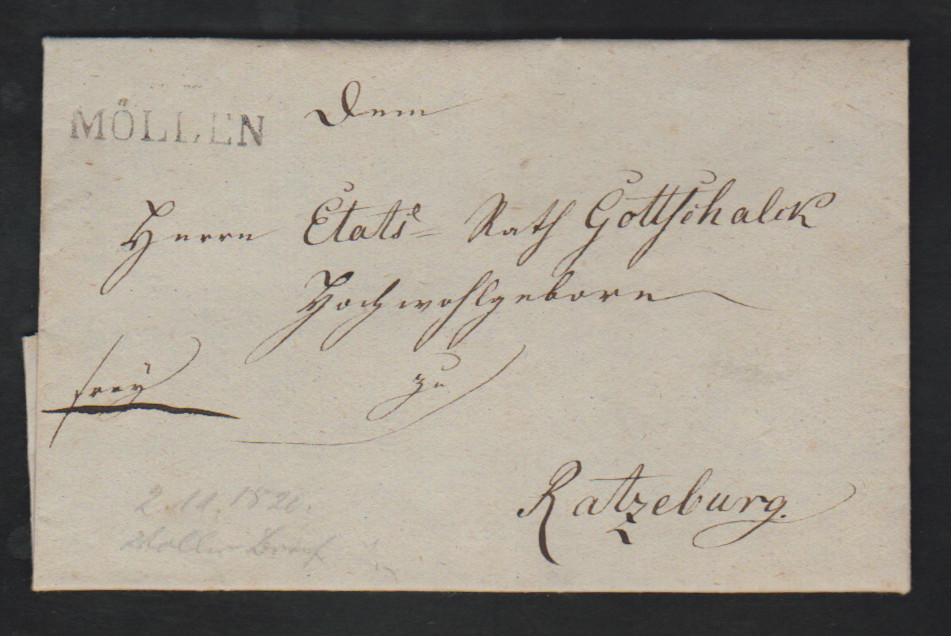 MÖLLEN
Dem
Herrn Etats- Rath Gottschalck
Hochwohlgeborn
frey
zu
Ratzeburg.
2.11.1820.
Brief